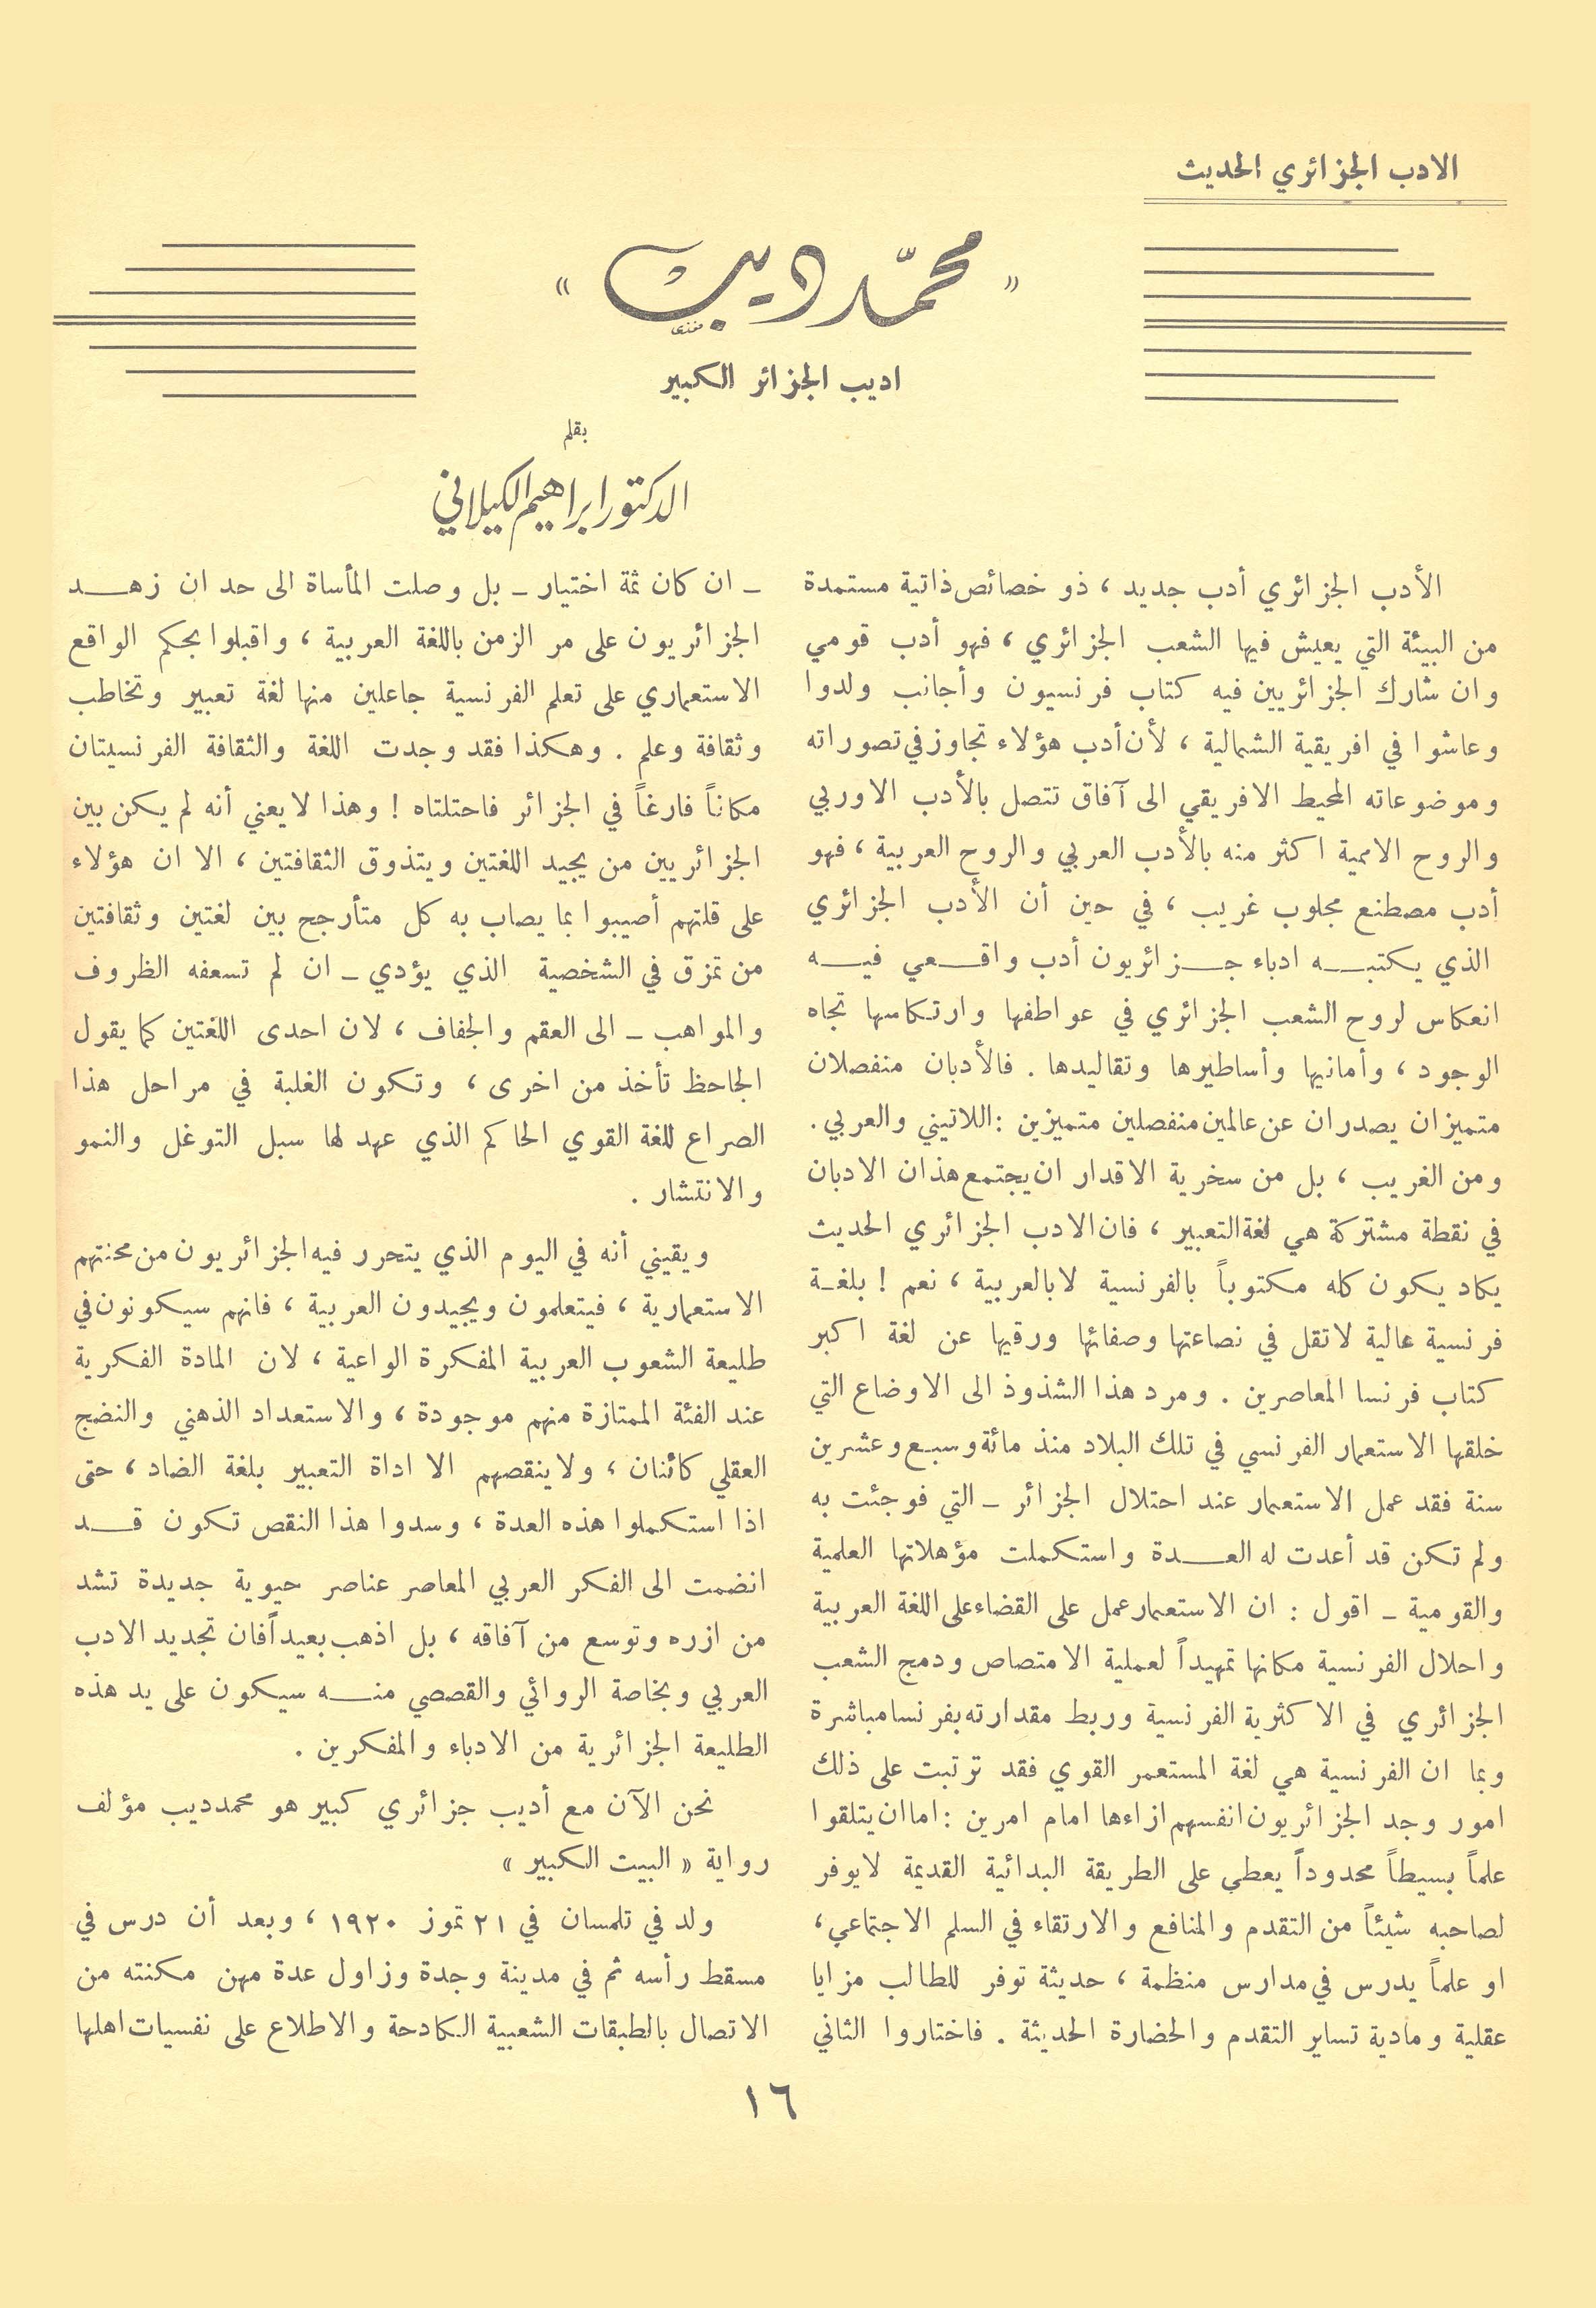 الادب الجزائري الحديث
« محمّد ديب »
اديب الجزائر الكبير
بقلم
الدكتور ابراهيم الكيلاني
الأدب الجزائري أدب جديد ، ذو خصائص ذاتية مستمدة
من البيئة التي يعيش فيها الشعب الجزائري ، فهو أدب قومي
وان شارك الجزائريين فيه كتاب فرنسيون وأجانب ولدوا
وعاشوا في افريقية الشمالية ، لأن أدب هؤلاء تجاوز في تصوراته
وموضوعاته المحيط الافريقي الى آفاق تتصل بالأدب الاوربي
والروح الاممية اكثر منه بالأدب العربي والروح العربية ، فهو
أدب مصطنع مجلوب غريب ، في حين أن الأدب الجزائري
الذي يكتبه ادباء جزائريون أدب واقعي فيه
انعكاس لروح الشعب الجزائري في عواطفها وارتكاسها تجاه
الوجود ، وأمانيها وأساطيرها وتقاليدها . فالأدبان منفصلان
متميزان يصدران عن عالمين منفصلين متميزين : اللاتيني والعربي .
ومن الغريب ، بل من سخرية الاقدار ان يجتمع هذان الادبان
في نقطة مشتركة هي لغة التعبير ، فان الادب الجزائري الحديث
يكاد يكون كله مكتوباً بالفرنسية لا بالعربية ، نعم ! بلغة
فرنسية عالية لا تقل في نصاعتها وصفائها ورقيها عن لغة اكبر
كتاب فرنسا المعاصرين . ومرد هذا الشذوذ الى الاوضاع التي
خلقها الاستعمار الفرنسي في تلك البلاد منذ مائة وسبع وعشرين
سنة فقد عمل الاستعمار عند احتلال الجزائر ـ التي فوجئت به
ولم تكن قد أعدت له العدة واستكملت مؤهلاتها العلمية
والقومية ـ اقول : ان الاستعمار عمل على القضاء على اللغة العربية
واحلال الفرنسية مكانها تمهيداً لعملية الامتصاص ودمج الشعب
الجزائري في الاكثرية الفرنسية وربط مقدارته بفرنسا مباشرة
وبما ان الفرنسية هي لغة المستعمر القوي فقد ترتبت على ذلك
امور وجد الجزائريون انفسهم ازاءها امام امرين : اما ان يتلقوا
علماً بسيطاً محدوداً يعطي على الطريقة البدائية القديمة لا يوفر
لصاحبه شيئاً من التقدم والمنافع والارتقاء في السلم الاجتماعي ،
او علماً يدرس في مدارس منظمة ، حديثة توفر للطالب مزايا
عقلية ومادية تساير التقدم والحضارة الحديثة . فاختاروا الثاني
ـ ان كان ثمة اختيار ـ بل وصلت المأساة الى حد ان زهد
الجزائريون على مر الزمن باللغة العربية ، واقبلوا بحكم الواقع
الاستعماري على تعلم الفرنسية جاعلين منها لغة تعبير وتخاطب
وثقافة وعلم . وهكذا فقد وجدت اللغة والثقافة الفرنسيتان
مكاناً فارغاً في الجزائر فاحتلتاه ! وهذا لا يعني أنه لم يكن بين
الجزائريين من يجيد اللغتين ويتذوق الثقافتين ، الا ان هؤلاء
على قلتهم أصيبوا بما يصاب به كل متأرجح بين لغتين وثقافتين
من تمزق في الشخصية الذي يؤدي ـ ان لم تسعفه الظروف
والمواهب ـ الى العقم والجفاف ، لان احدى اللغتين كما يقول
الجاحظ تأخذ من اخرى ، وتكون الغلبة في مراحل هذا
الصراع للغة القوي الحاكم الذي عهد لها سبل التوغل والنمو
والانتشار .
ويقيني أنه في اليوم الذي يتحرر فيه الجزائريون من محنتهم
الاستعمارية ، فيتعلمون ويجيدون العربية ، فانهم سيكونون في
طليعة الشعوب العربية المفكرة الواعية ، لان المادة الفكرية
عند الفئة الممتازة منهم موجودة ، والاستعداد الذهني والنضج
العقلي كائنان ، ولا ينقصهم الا اداة التعبير بلغة الضاد ، حتى
اذا استكملوا هذه العدة ، وسدوا هذا النقص تكون قد
انضمت الى الفكر العربي المعاصر عناصر حيوية جديدة تشد
من ازره وتوسع من آفاقه ، بل اذهب بعيداً فان تجديد الادب
العربي وبخاصة الروائي والقصصي منه سيكون على يد هذه
الطليعة الجزائرية من الادباء والمفكرين .
نحن الآن مع أديب جزائري كبير هو محمد ديب مؤلف
رواية « البيت الكبير »
ولد في تلمسان في ٢١ تموز ١٩٢٠ ، وبعد أن درس في
مسقط رأسه ثم في مدينة وجدة وزاول عدة مهن مكنته من
الاتصال بالطبقات الشعبية الكادحة والاطلاع على نفسيات اهلها
١٦